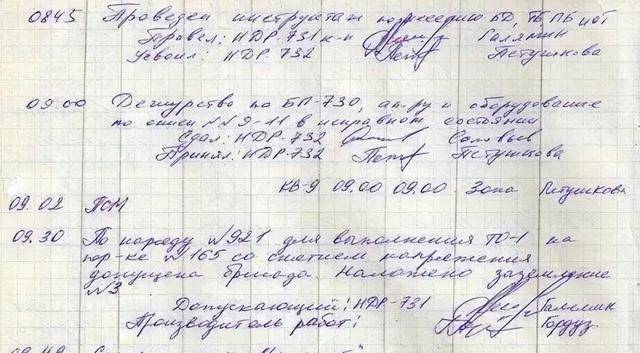 0845 Проведен инструктаж по несению БД, ТБ, ПБ и ОТ
Провел: НДР-731 к-н Галямин
Усвоил: НДР-732 Петушкова
09.00 Дежурство по БП-730, ап-ру и оборудование
по описи №№9-11 в исправном состоянии
Сдал: НДР-732 Соловьев
Принял: НДР-732 Петушкова
КВ-9 09.00 09.00 Зона Петушкова
09.02 ПСМ
09.30 По наряду №921 для выполнения ТО-1 на
пор-ке №165 со снятием напряжения
допущена бригада. Наложено заземление
№3
Допускающий: НДР-731 Галямин
Производитель работ:
09.49